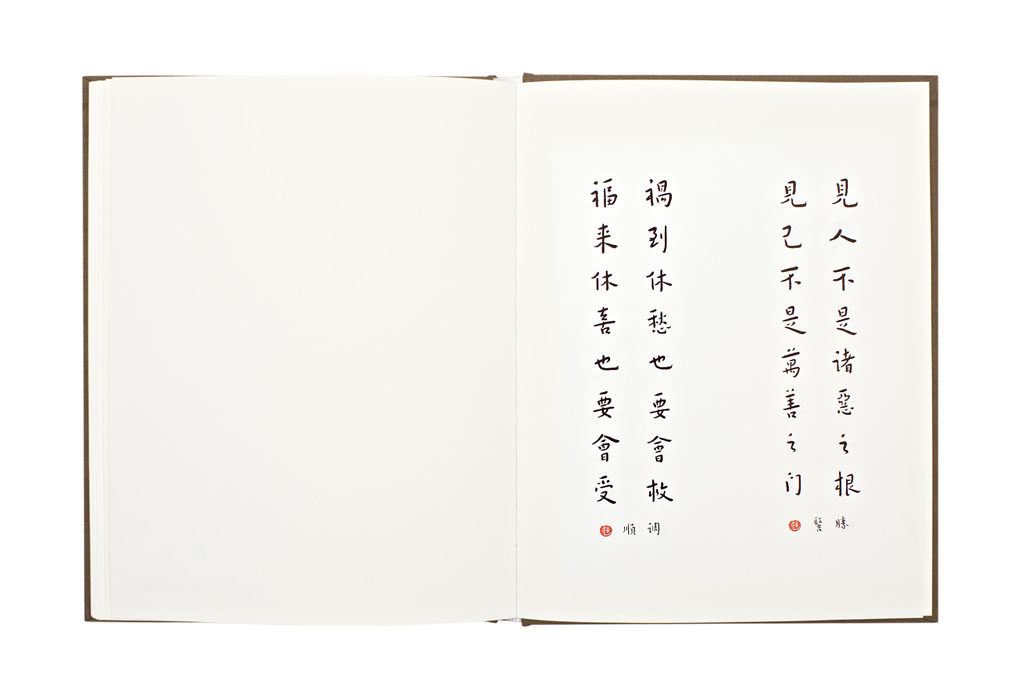 見人不是诸惡之根
見己不是萬善之门
勝鬘
禍到休愁也要會救
福来休喜也要會受
调順